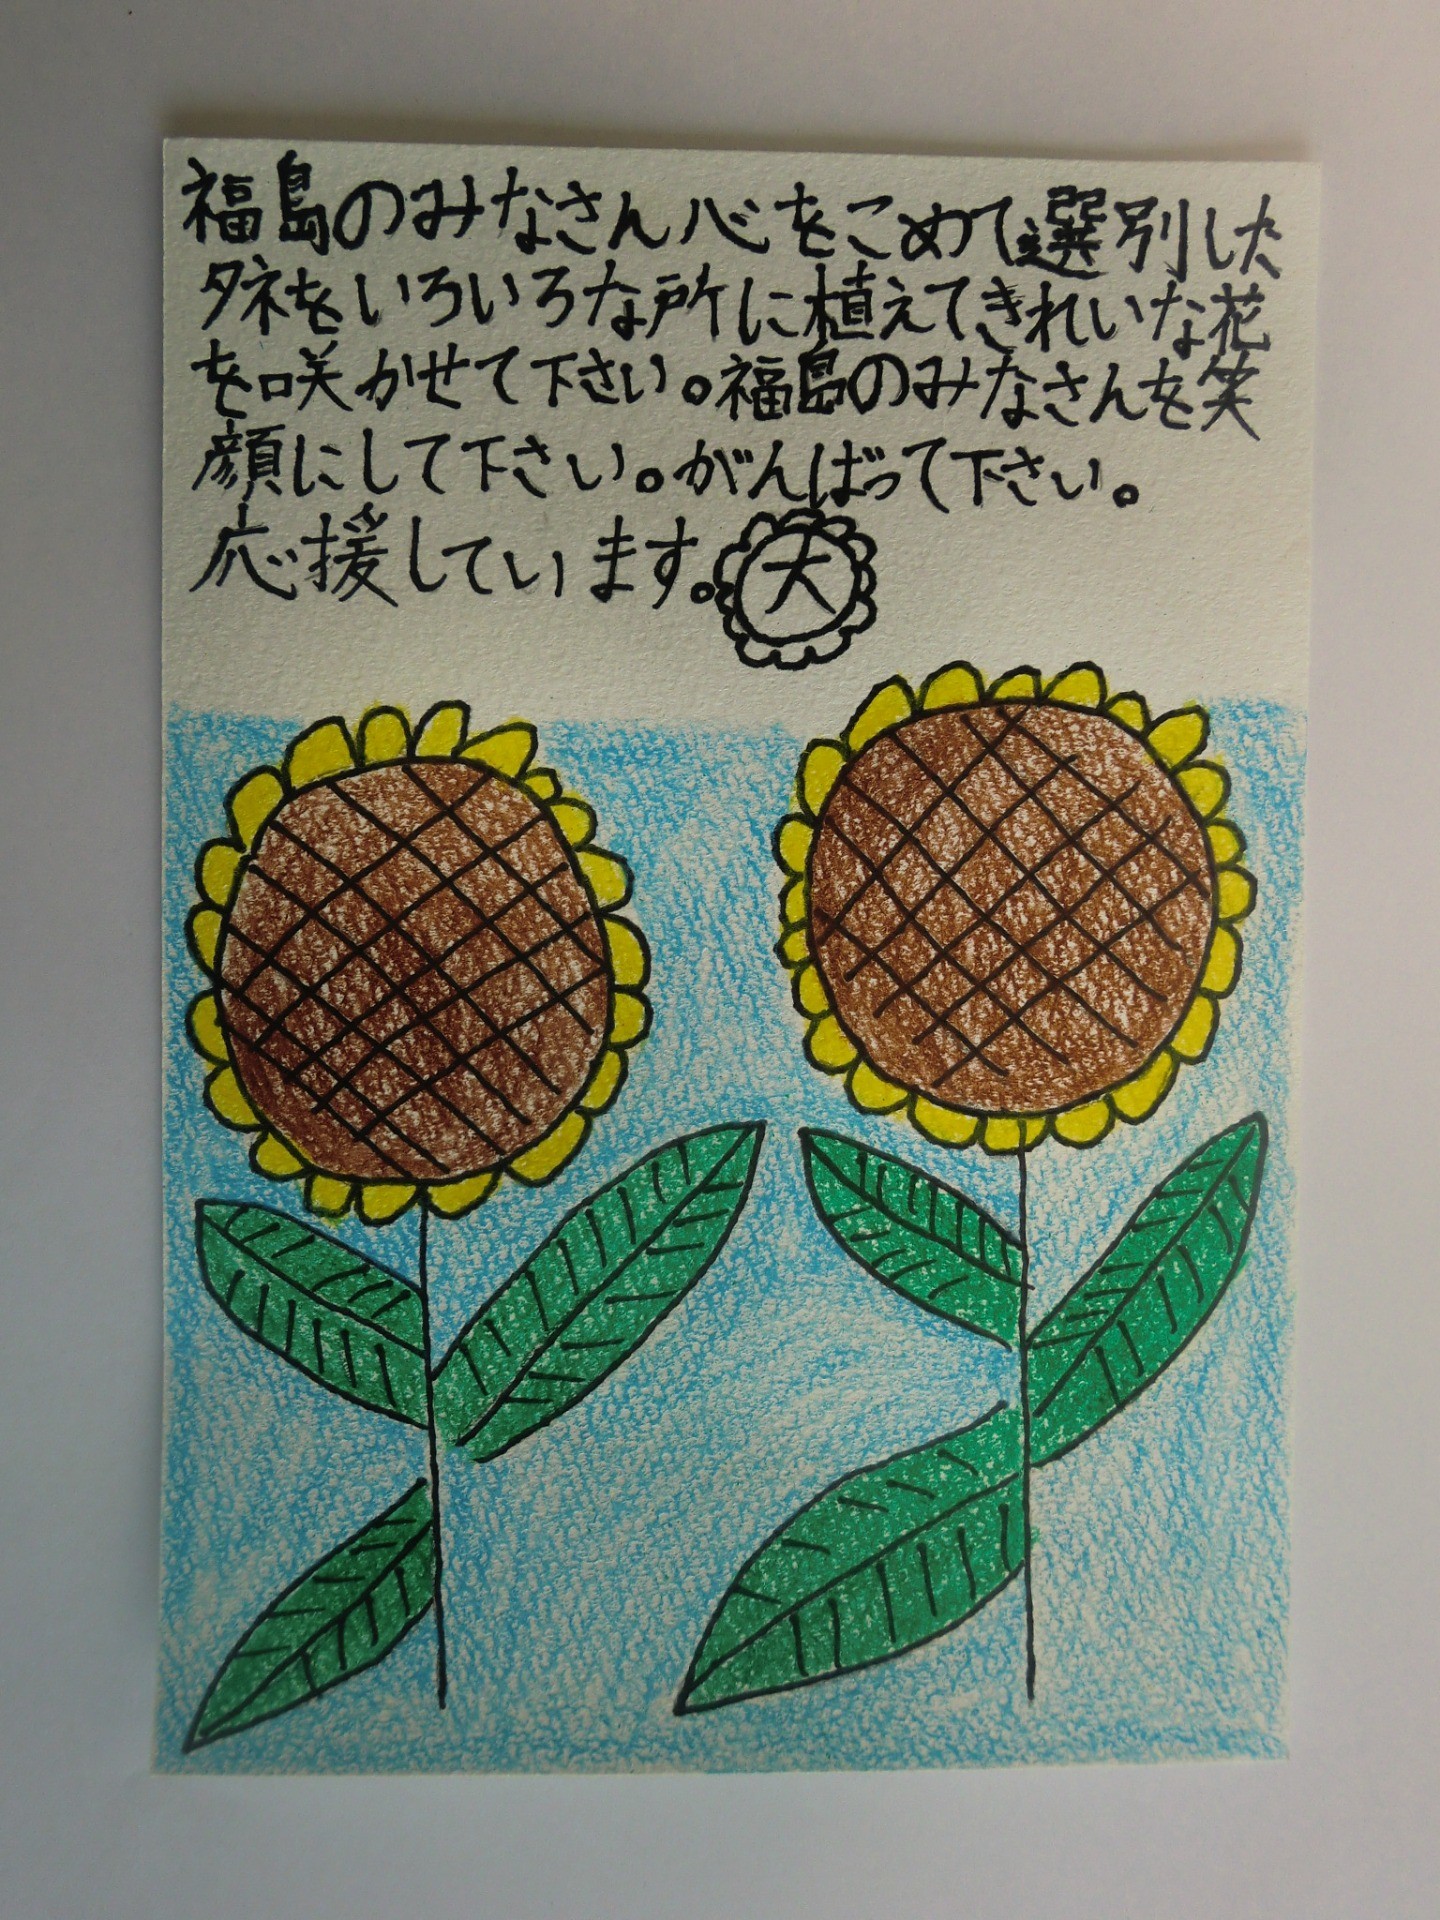 福島のみなさん心をこめて選別した
タネをいろいろな所に植えてきれいな花
を咲かせて下さい。福島のみなさんを笑
顔にして下さい。がんばって下さい。
応援しています。大